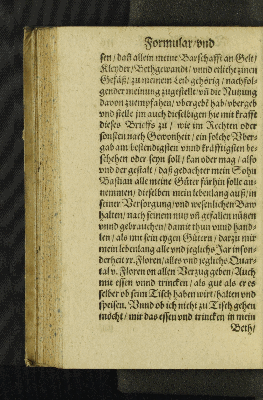 Formular vnd
sen / daß allein meine Barschafft an Gelt /
Kleyder / Bethgewandt / vnnd etliche zinen
Gefäß / zu meinem Leib gehörig / nachfol-
gender meinung zugestellt vn̄ die Nutzung
davon zuempfahen / vbergebt hab / vbergeb
vnd stelle jm auch dieselbigen hie mit krafft
dieses Brieffs zu / wie im Rechten oder
sonsten nach Gewonheit / ein solche Vber-
gab am bestendigsten vnnd kräfftigsten be-
schehen oder seyn soll / kan oder mag / also
vnd der gestalt / daß gedachter mein Sohn
Bastian alle meine Güter fürhin solle an-
nemmen / dieselben mein lebenlang auß / in
seiner Versorgung / vnd wesenlichen Baw
halten / nach seinem nutz vn̄ gefallen nützen
vnnd gebrauchen / damit thun vnnd handt-
len / als mit sein eygen Gütern / darzu mir
mein lebenlang alle vnd jegliche Jar inson-
derheit xx. Floren / alles vnd jegliche Quar-
tal v. Floren on allen Verzug geben / Auch
mit essen vnnd trincken / als gut als er es
selber ob sein Tisch haben wirt / halten vnd
speisen. Vnnd ob ich nicht zu Tisch gehen
möcht / mir das essen vnd trincken in mein
Beth /